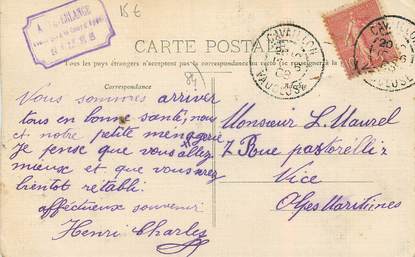 15€
CARTE POSTALE
Tous les pays étrangers n'acceptent pas la correspondance au recto
Correspondance
84)
CAVAILLON
VAUCLUSE
CAVAILLON
VAUCLUSE
Vous sommes arriver
tous en bonne santé, nous
et notre petite menagerie
je pense que vous allez
mieux et que vous serez
bientot retabli.
afféctueux souvenir
Henri Charles
Monsieur L. Maurel
7 Rue pastorelli 7
Nice
Alpes Maritimes